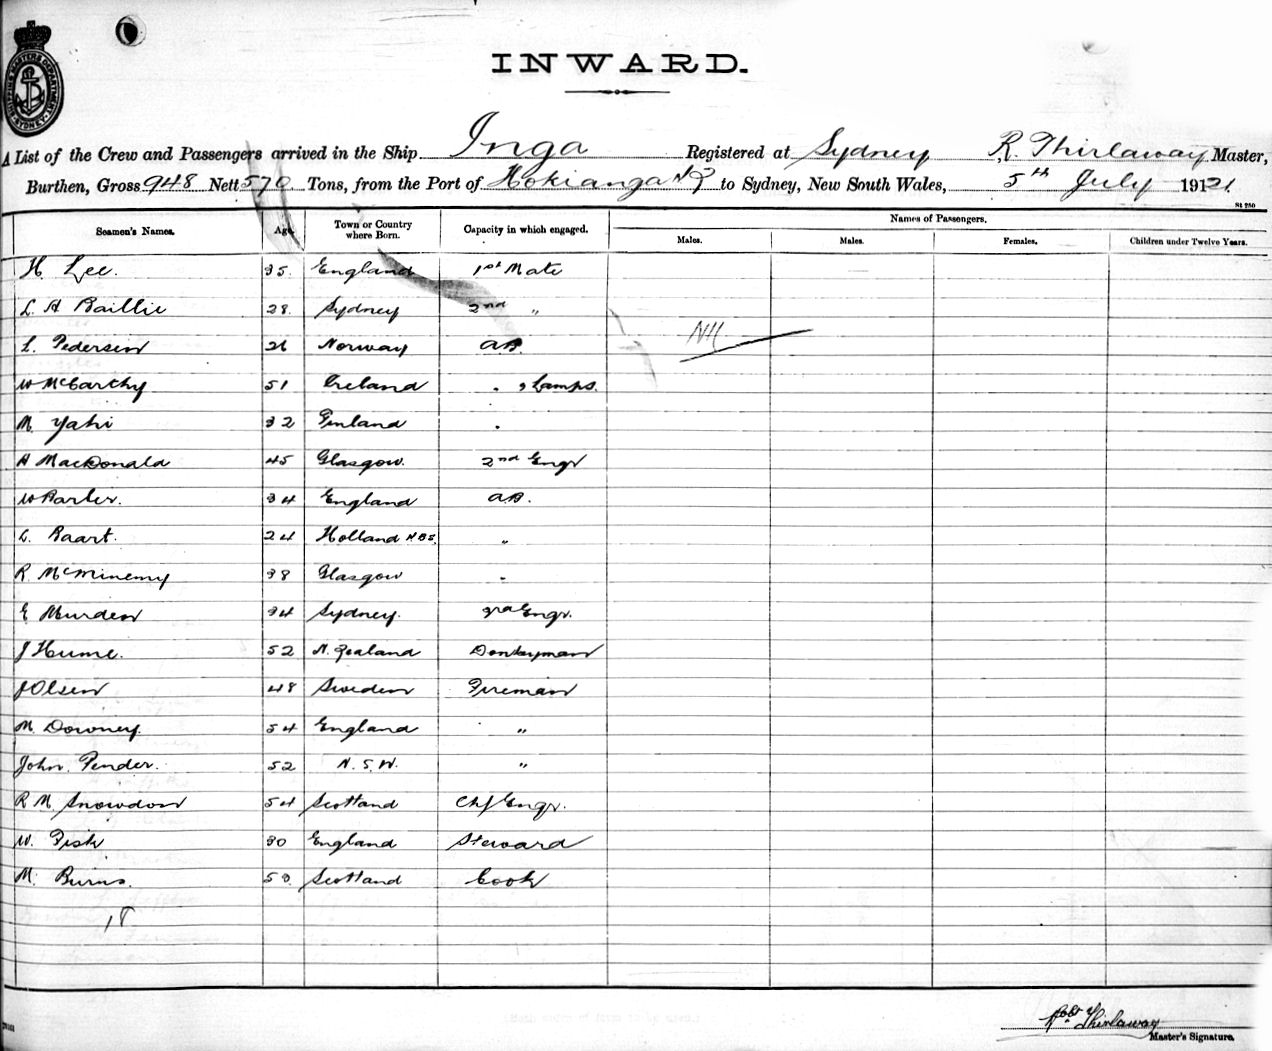 SHIPPING MASTERS DEPARTMENT SYDNEY
INWARD.
A List of the Crew and Passengers arrived in the Ship Inga Registered at Sydney R. Thirlaway Master,
Burthen, Gross 948 Nett 570 Tons, from the Port of Hokianga NZ to Sydney, New South Wales, 5th July 1921
St 250
Seamen's Names. Age. Town or Country where Born. Capacity in which engaged. Names of Passengers.
Males. Males. Females. Children under Twelve Years.
H. Lee. 35. England 1st Mate
L. A Baillie 28. Sydney 2nd "
L. Pedersen 26 Norway AB. Nil
W McCarthy 51 Ireland " & Lamps.
M. Yahi 32 Finland "
A MacDonald 45 Glasgow. 2nd Engr
W Barber. 34 England AB.
L. Baart. 24 Holland "
R. McMinemy 38 Glasgow "
E Murden 34 Sydney. 3rd Engr.
J Hume. 52 N. Zealand Donkeyman
J Olsen 48 Sweden Fireman
M. Downey. 54 England "
John Pender. 52 N.S.W. "
R M. Snowdon 54 Scotland Chf Engr.
W. Fisk 30 England Steward
M. Burns. 50. Scotland Cook
18
Robt Thirlaway
Master's Signature.